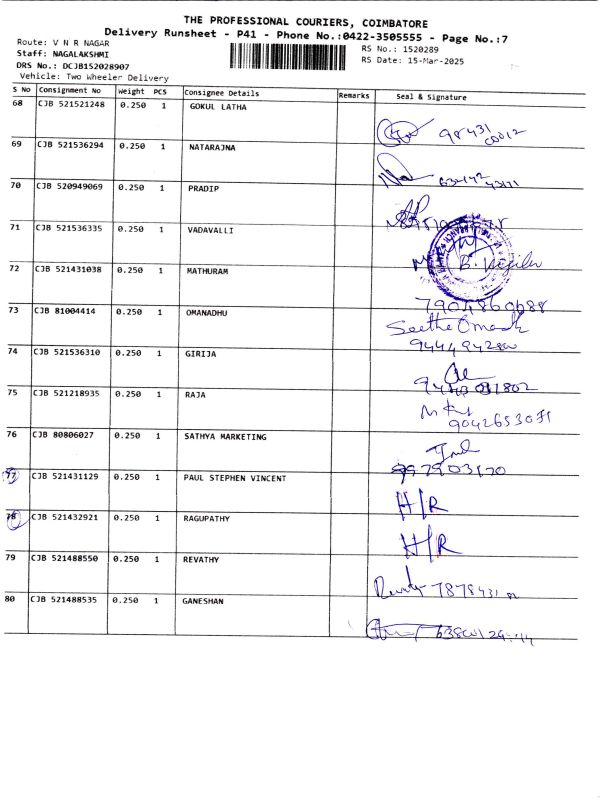 THE PROFESSIONAL COURIERS, COIMBATORE
Delivery Runsheet - P41 - Phone No.:0422-3505555 - Page No.:7
Route: V N R NAGAR
Staff: NAGALAKSHMI
DRS No.: DCJB152028907
Vehicle: Two Wheeler Delivery
RS No.: 1520289
RS Date: 15-Mar-2025
S No Consignment No Weight PCS Consignee Details Remarks Seal & Signature
68 CJB 521521248 0.250 1 GOKUL LATHA
69 CJB 521536294 0.250 1 NATARAJNA
70 CJB 520949069 0.250 1 PRADIP
71 CJB 521536335 0.250 1 VADAVALLI
72 CJB 521431038 0.250 1 MATHURAM
7904860688
73 CJB 81004414 0.250 1 OMANADHU
74 CJB 521536310 0.250 1 GIRIJA
75 CJB 521218935 0.250 1 RAJA
9042653071
76 CJB 80806027 0.250 1 SATHYA MARKETING
77 CJB 521431129 0.250 1 PAUL STEPHEN VINCENT H/R
78 CJB 521432921 0.250 1 RAGUPATHY H/R
79 CJB 521488550 0.250 1 REVATHY
80 CJB 521488535 0.250 1 GANESHAN